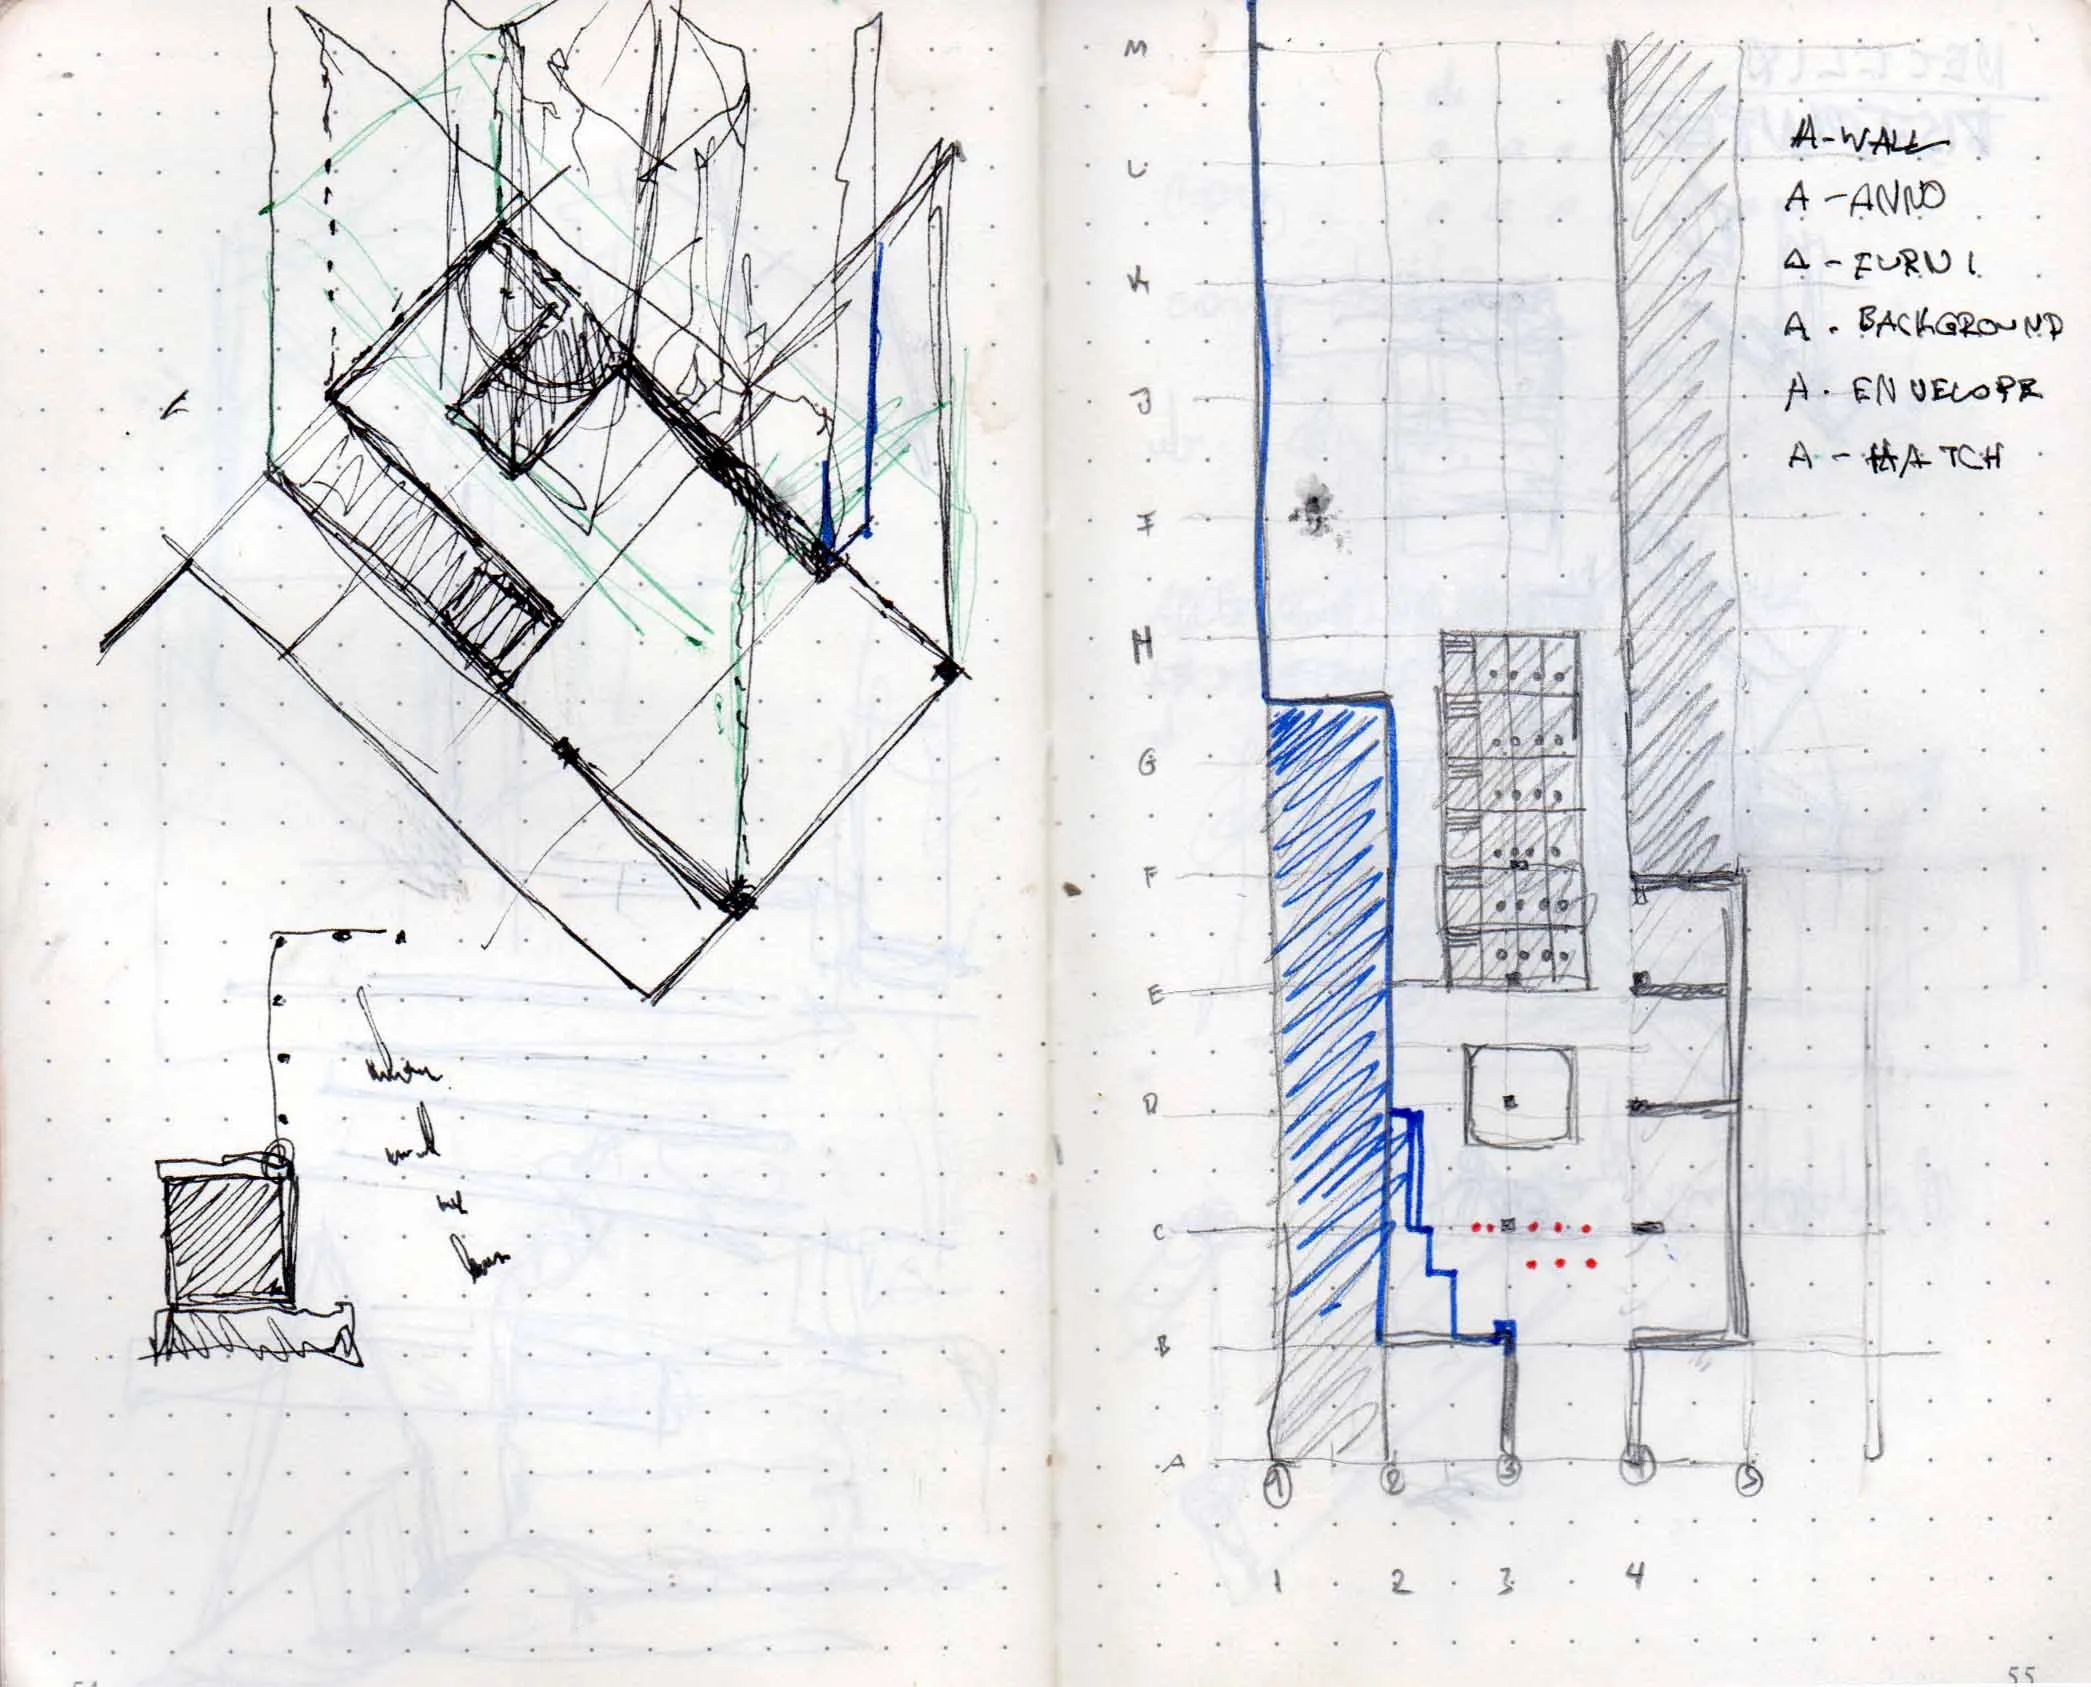 M
L
K
J
I
H
G
F
E
D
C
B
A
1 2 3 4 5
1 2 3 4
A-WALL
A-ANNO
A-FURNI
A. BACKGROUND
A. ENVELOPE
A-HATCH
55